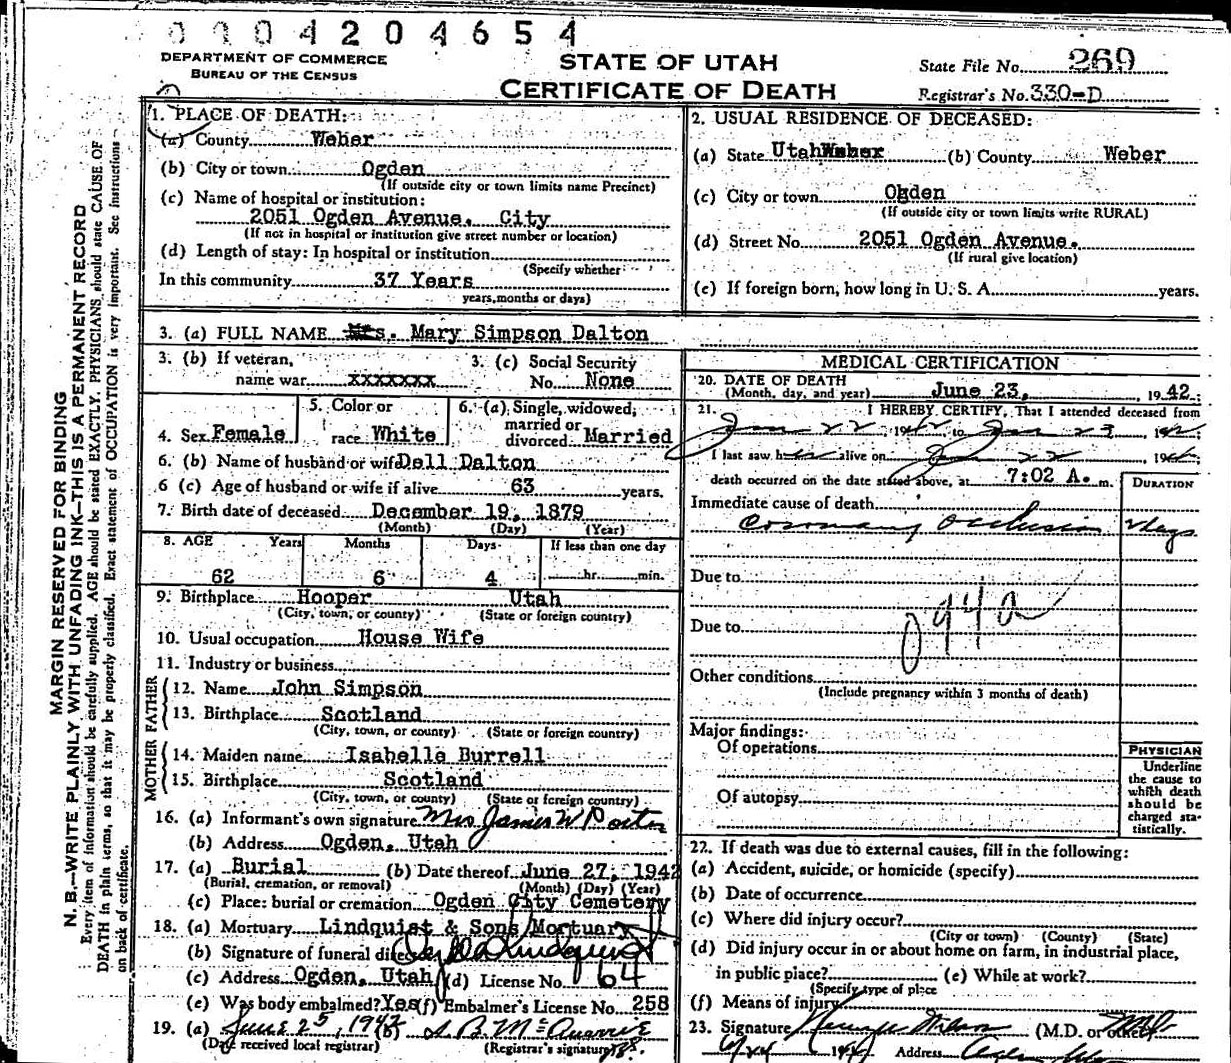 0004204654
DEPARTMENT OF COMMERCE
BUREAU OF THE CENSUS
STATE OF UTAH
CERTIFICATE OF DEATH
State File No. 269
Registrar's No. 330-D
MARGIN RESERVED FOR BINDING
N. B.—WRITE PLAINLY WITH UNFADING INK—THIS IS A PERMANENT RECORD
Every item of information should be carefully supplied. AGE should be stated EXACTLY. PHYSICIANS should state CAUSE OF
DEATH in plain terms, so that it may be properly classified. Exact statement of OCCUPATION is very important. See instructions
on back of certificate.
1. PLACE OF DEATH:
(a) County Weber
(b) City or town Ogden
(If outside city or town limits name Precinct)
(c) Name of hospital or institution:
2051 Ogden Avenue. City
(If not in hospital or institution give street number or location)
(d) Length of stay: In hospital or institution
(Specify whether
In this community 37 Years
years, months or days)
2. USUAL RESIDENCE OF DECEASED:
(a) State Utah (b) County Weber
(c) City or town Ogden
(If outside city or town limits write RURAL)
(d) Street No. 2051 Ogden Avenue.
(If rural give location)
(e) If foreign born, how long in U. S. A. years.
3. (a) FULL NAME Mrs. Mary Simpson Dalton
3. (b) If veteran, name war xxxxxxx
3. (c) Social Security No. None
4. Sex Female
5. Color or race White
6. (a) Single, widowed, married or divorced Married
6. (b) Name of husband or wife Dell Dalton
6 (c) Age of husband or wife if alive 63 years.
7. Birth date of deceased December 19, 1879
(Month) (Day) (Year)
8. AGE Years Months Days If less than one day
62 6 4 hr. min.
9. Birthplace Hooper Utah
(City, town, or county) (State or foreign country)
10. Usual occupation House Wife
11. Industry or business
FATHER
12. Name John Simpson
13. Birthplace Scotland
(City, town, or county) (State or foreign country)
MOTHER
14. Maiden name Isabelle Burrell
15. Birthplace Scotland
(City, town, or county) (State or foreign country)
16. (a) Informant's own signature Mrs James W Porter
(b) Address Ogden, Utah
17. (a) Burial (b) Date thereof June 27, 1942
(Burial, cremation, or removal) (Month) (Day) (Year)
(c) Place: burial or cremation Ogden City Cemetery
18. (a) Mortuary Lindquist & Sons Mortuary
(b) Signature of funeral director Lindquist
(c) Address Ogden, Utah (d) License No. 64
(e) Was body embalmed? Yes (f) Embalmer's License No. 258
19. (a) June 25, 1942 (b)
(Date received local registrar) (Registrar's signature)
MEDICAL CERTIFICATION
20. DATE OF DEATH
(Month, day, and year) June 23, 1942.
21. I HEREBY CERTIFY, That I attended deceased from
Jun 22, 1942 to Jun 23 1942
I last saw her alive on Jun 22 1942
death occurred on the date stated above, at 7:02 A. m.
DURATION
Immediate cause of death
Coronary Occlusion
Due to
Due to
94a
Other conditions
(Include pregnancy within 3 months of death)
Major findings:
Of operations
Of autopsy
PHYSICIAN
Underline
the cause to
which death
should be
charged sta-
tistically.
22. If death was due to external causes, fill in the following:
(a) Accident, suicide, or homicide (specify)
(b) Date of occurrence
(c) Where did injury occur?
(City or town) (County) (State)
(d) Did injury occur in or about home on farm, in industrial place,
in public place? (e) While at work?
(Specify type of place
(f) Means of injury
23. Signature (M.D. or other)
Address